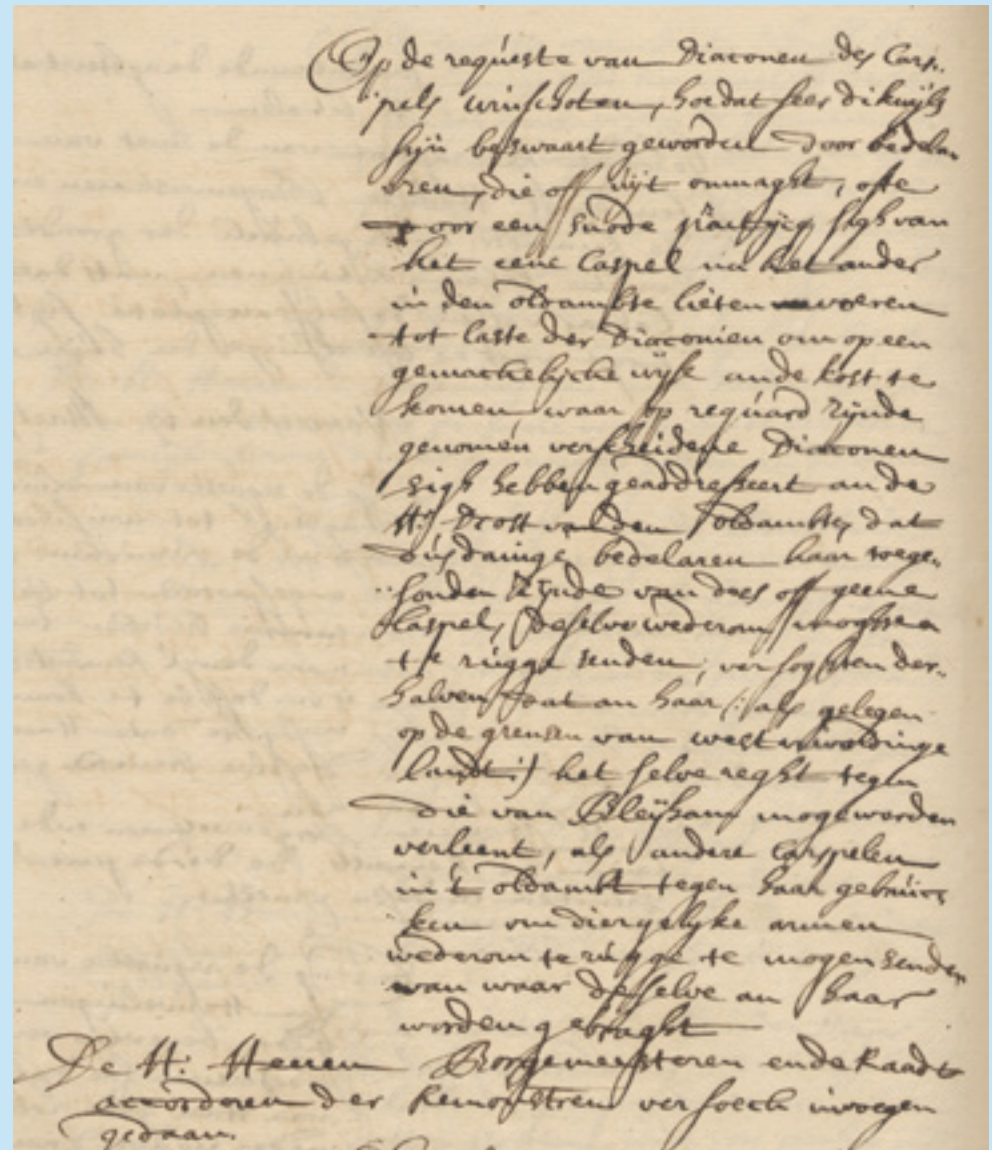 Op de requeste van Diaconen des Cars-
pels winschoten, hoe dat seer dikwijls
sijn beswaart geworden door bedela-
eren, die off uijt onmaght, ofte
door een snode practijcq sigh van
het eene Caspel in het ander
in den oldambte lieten voeren
tot laste der Diaconien om op een
gemackelijcke wijse an de kost te
komen, waar op reguard zijnde
genomen verscheidene Diaconen
sigh hebben geaddresseert an de
H:r Drost van den oldambte, dat
dusdainge bedelaren haar toege-
sonden zijnde van dees off geene
Caspel, deselve wederom moghten
te rugge senden, versoghten der-
halven dat an haar (: als gelegen
op de grensen van westwoldinge
landt:) het selve reght tegen
die van Bleijham moge worden
verleent, als andere Carspelen
in 't oldambt tegen haar gebruic-
ken om diergelyke armen
wederom te rugge te mogen senden
van waar deselve an haar
worden gebraght
De H: Heeren Borgemeesteren ende Raadt
accorderen der Remonstren versoeck invoegen
gedaan.